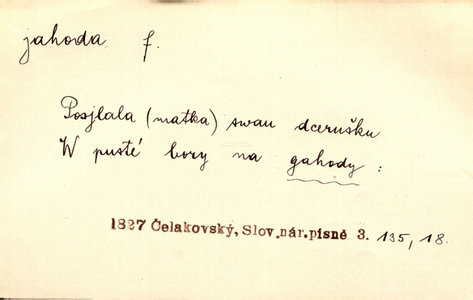 jahoda f.
Posjlala (matka) swau dcerušku
W pusté bory na gahody :
1827 Čelakovský, Slov.nár.písně 3. 135, 18.